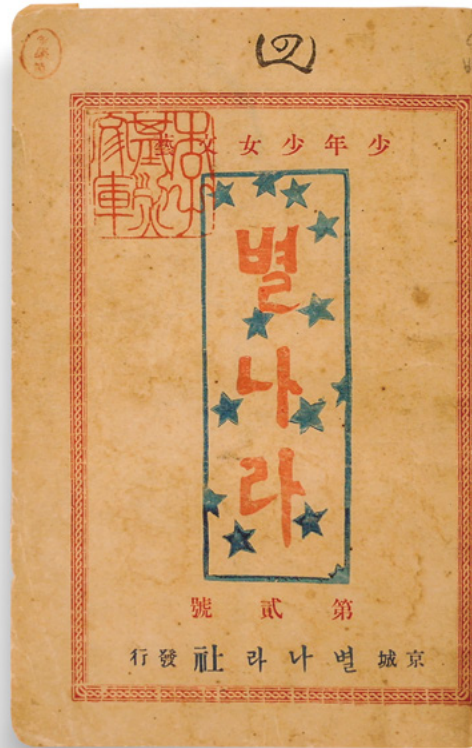 少年少女文藝
별나라
第貳號
京城 별나라社 發行